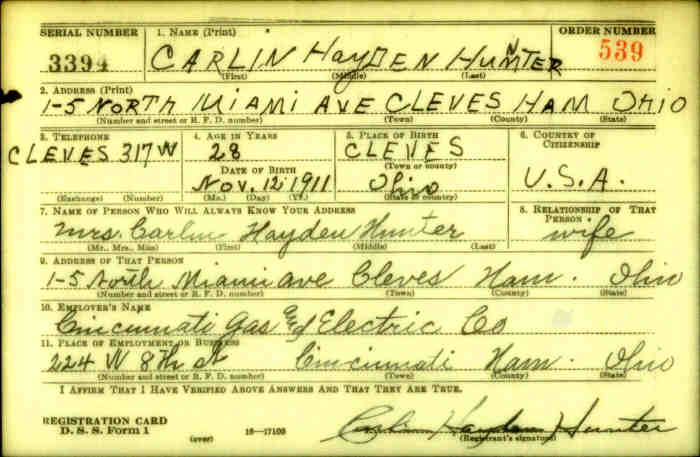 SERIAL NUMBER 1. NAME (Print) ORDER NUMBER
3394 CARLIN HAYDEN HUNTER 539
(First) (Middle) (Last)
2. ADDRESS (Print)
1-5 NORTH MIAMI AVE CLEVES HAM OHIO
(Number and street or R. F. D. number) (Town) (County) (State)
3. TELEPHONE 4. AGE IN YEARS 5. PLACE OF BIRTH 6. COUNTRY OF CITIZENSHIP
CLEVES 317 W 28 CLEVES
(Town or county)
DATE OF BIRTH
Nov. 12 1911 Ohio U.S.A.
(Exchange) (Number) (Mo.) (Day) (Yr.) (State or country)
7. NAME OF PERSON WHO WILL ALWAYS KNOW YOUR ADDRESS 8. RELATIONSHIP OF THAT PERSON
Mrs. Carlin Hayden Hunter wife
(Mr., Mrs., Miss) (First) (Middle) (Last)
9. ADDRESS OF THAT PERSON
1-5 North Miami Ave Cleves Ham. Ohio
(Number and street or R. F. D. number) (Town) (County) (State)
10. EMPLOYER'S NAME
Cincinnati Gas & Electric Co
11. PLACE OF EMPLOYMENT OR BUSINESS
224 W 8th St Cincinnati Ham. Ohio
(Number and street or R. F. D. number) (Town) (County) (State)
I AFFIRM THAT I HAVE VERIFIED ABOVE ANSWERS AND THAT THEY ARE TRUE.
REGISTRATION CARD
D. S. S. Form 1 (over) 16-17105 Carlin Hayden Hunter
(Registrant's signature)